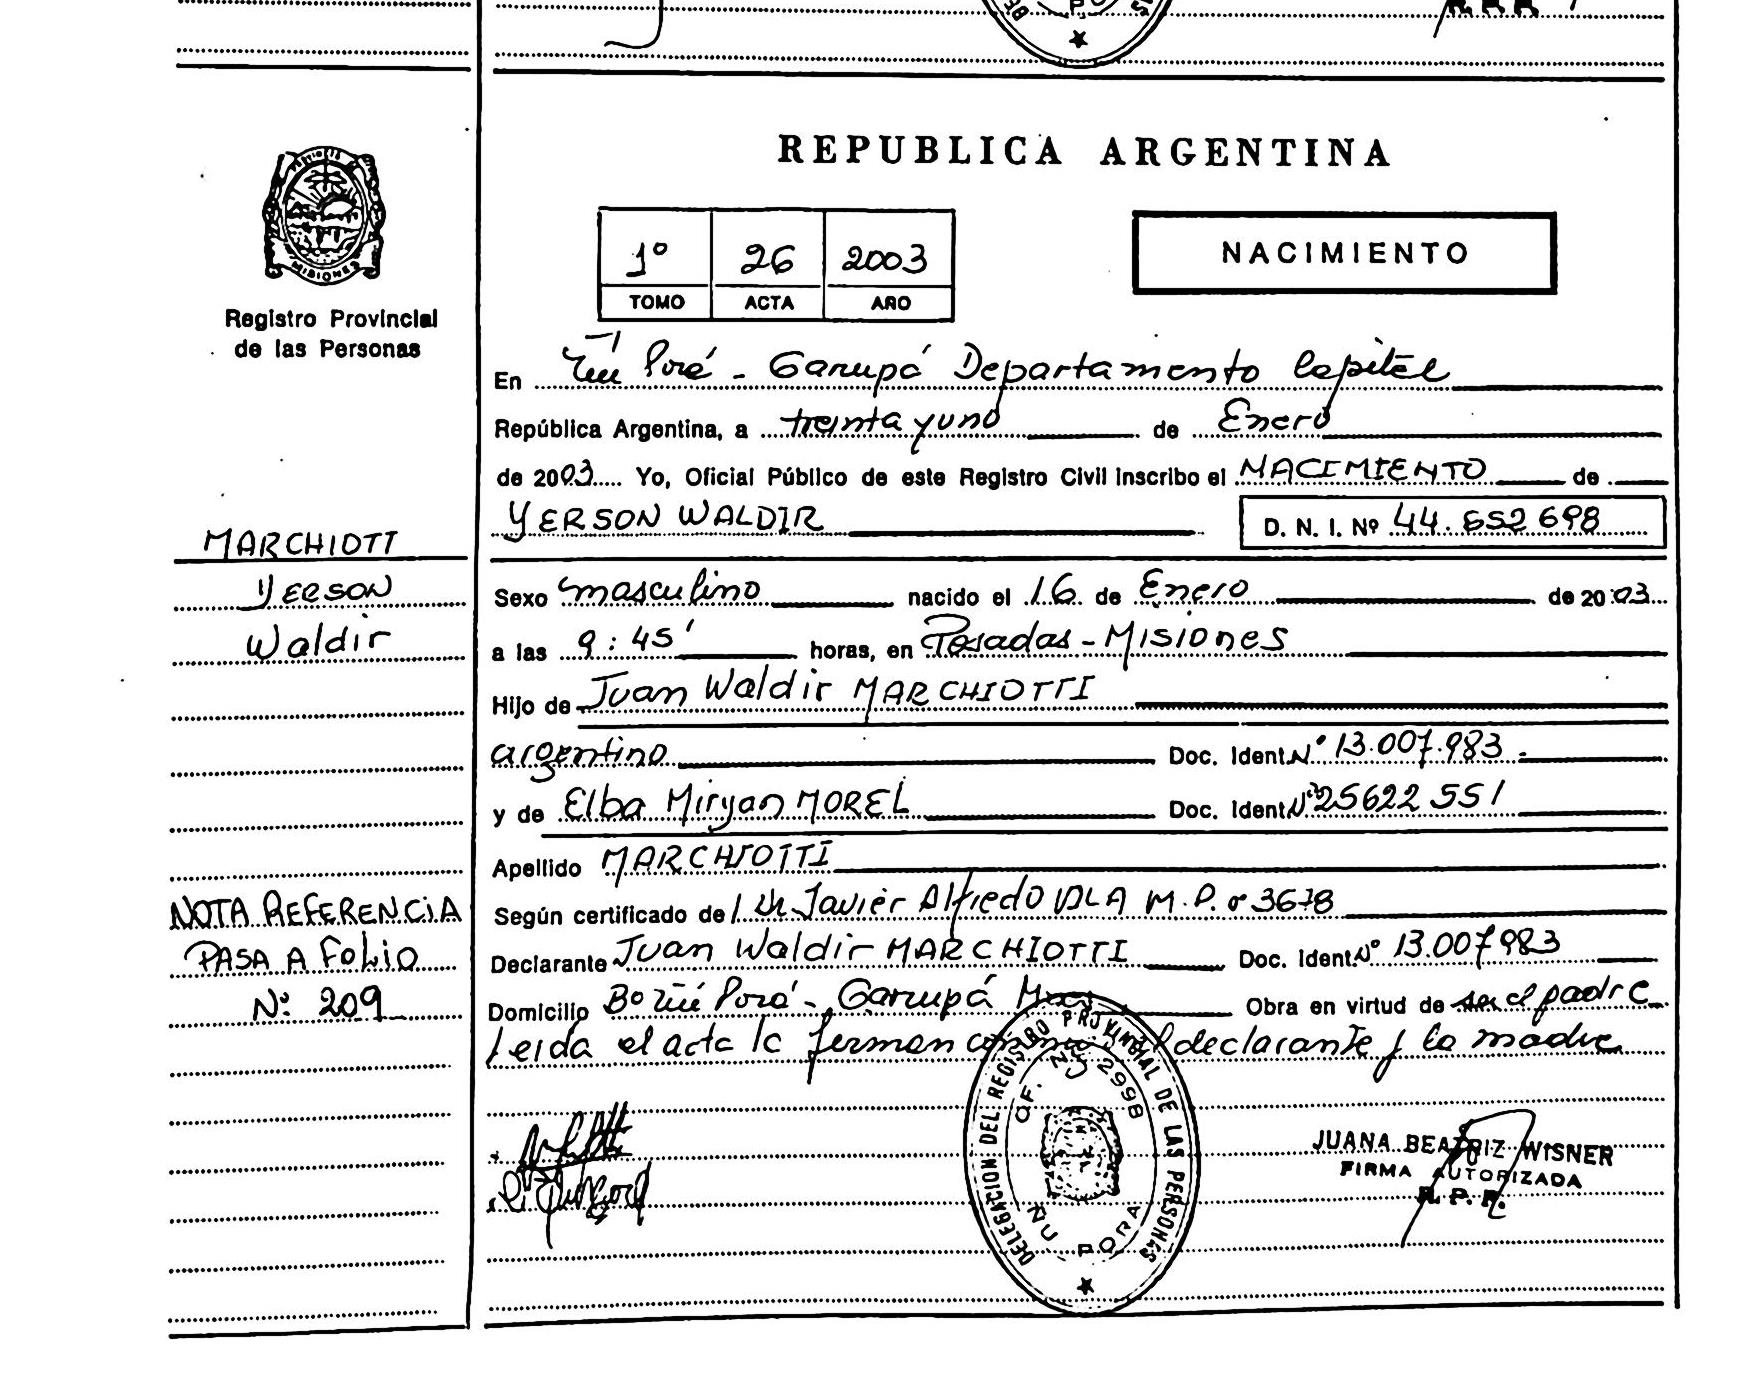 REPUBLICA ARGENTINA
PROVINCIA
MISIONES
Registro Provincial
de las Personas
1º 26 2003
TOMO ACTA AÑO
NACIMIENTO
En Ñu Porá - Garupá Departamento Capital
República Argentina, a treinta y uno de Enero
de 2003 Yo, Oficial Público de este Registro Civil inscribo el NACIMIENTO de
YERSON WALDIR D. N. I. Nº 44.652698
MARCHIOTT
YERSON
Waldir
Sexo masculino nacido el 16 de Enero de 2003
a las 9:45' horas, en Posadas - Misiones
Hijo de Juan Waldir MARCHIOTTI
argentino Doc. Ident. Nº 13.007.983
y de Elba Miryan MOREL Doc. Ident. Nº 25622551
Apellido MARCHIOTTI
Según certificado de Dr. Javier Alfredo VILA M.P. º 3678
Declarante Juan Waldir MARCHIOTTI Doc. Ident. Nº 13.007983
Domicilio Bº Ñú Porá - Garupá Mnes Obra en virtud de ser el padre
Leida el acta la firman conmigo el declarante y la madre
NOTA REFERENCIA
PASA A FOLIO
Nº: 209
DELEGACION DEL REGISTRO PROVINCIAL DE LAS PERSONAS
OF. Nº 2998
ÑU PORA
JUANA BEATRIZ WISNER
FIRMA AUTORIZADA
R. P. P.